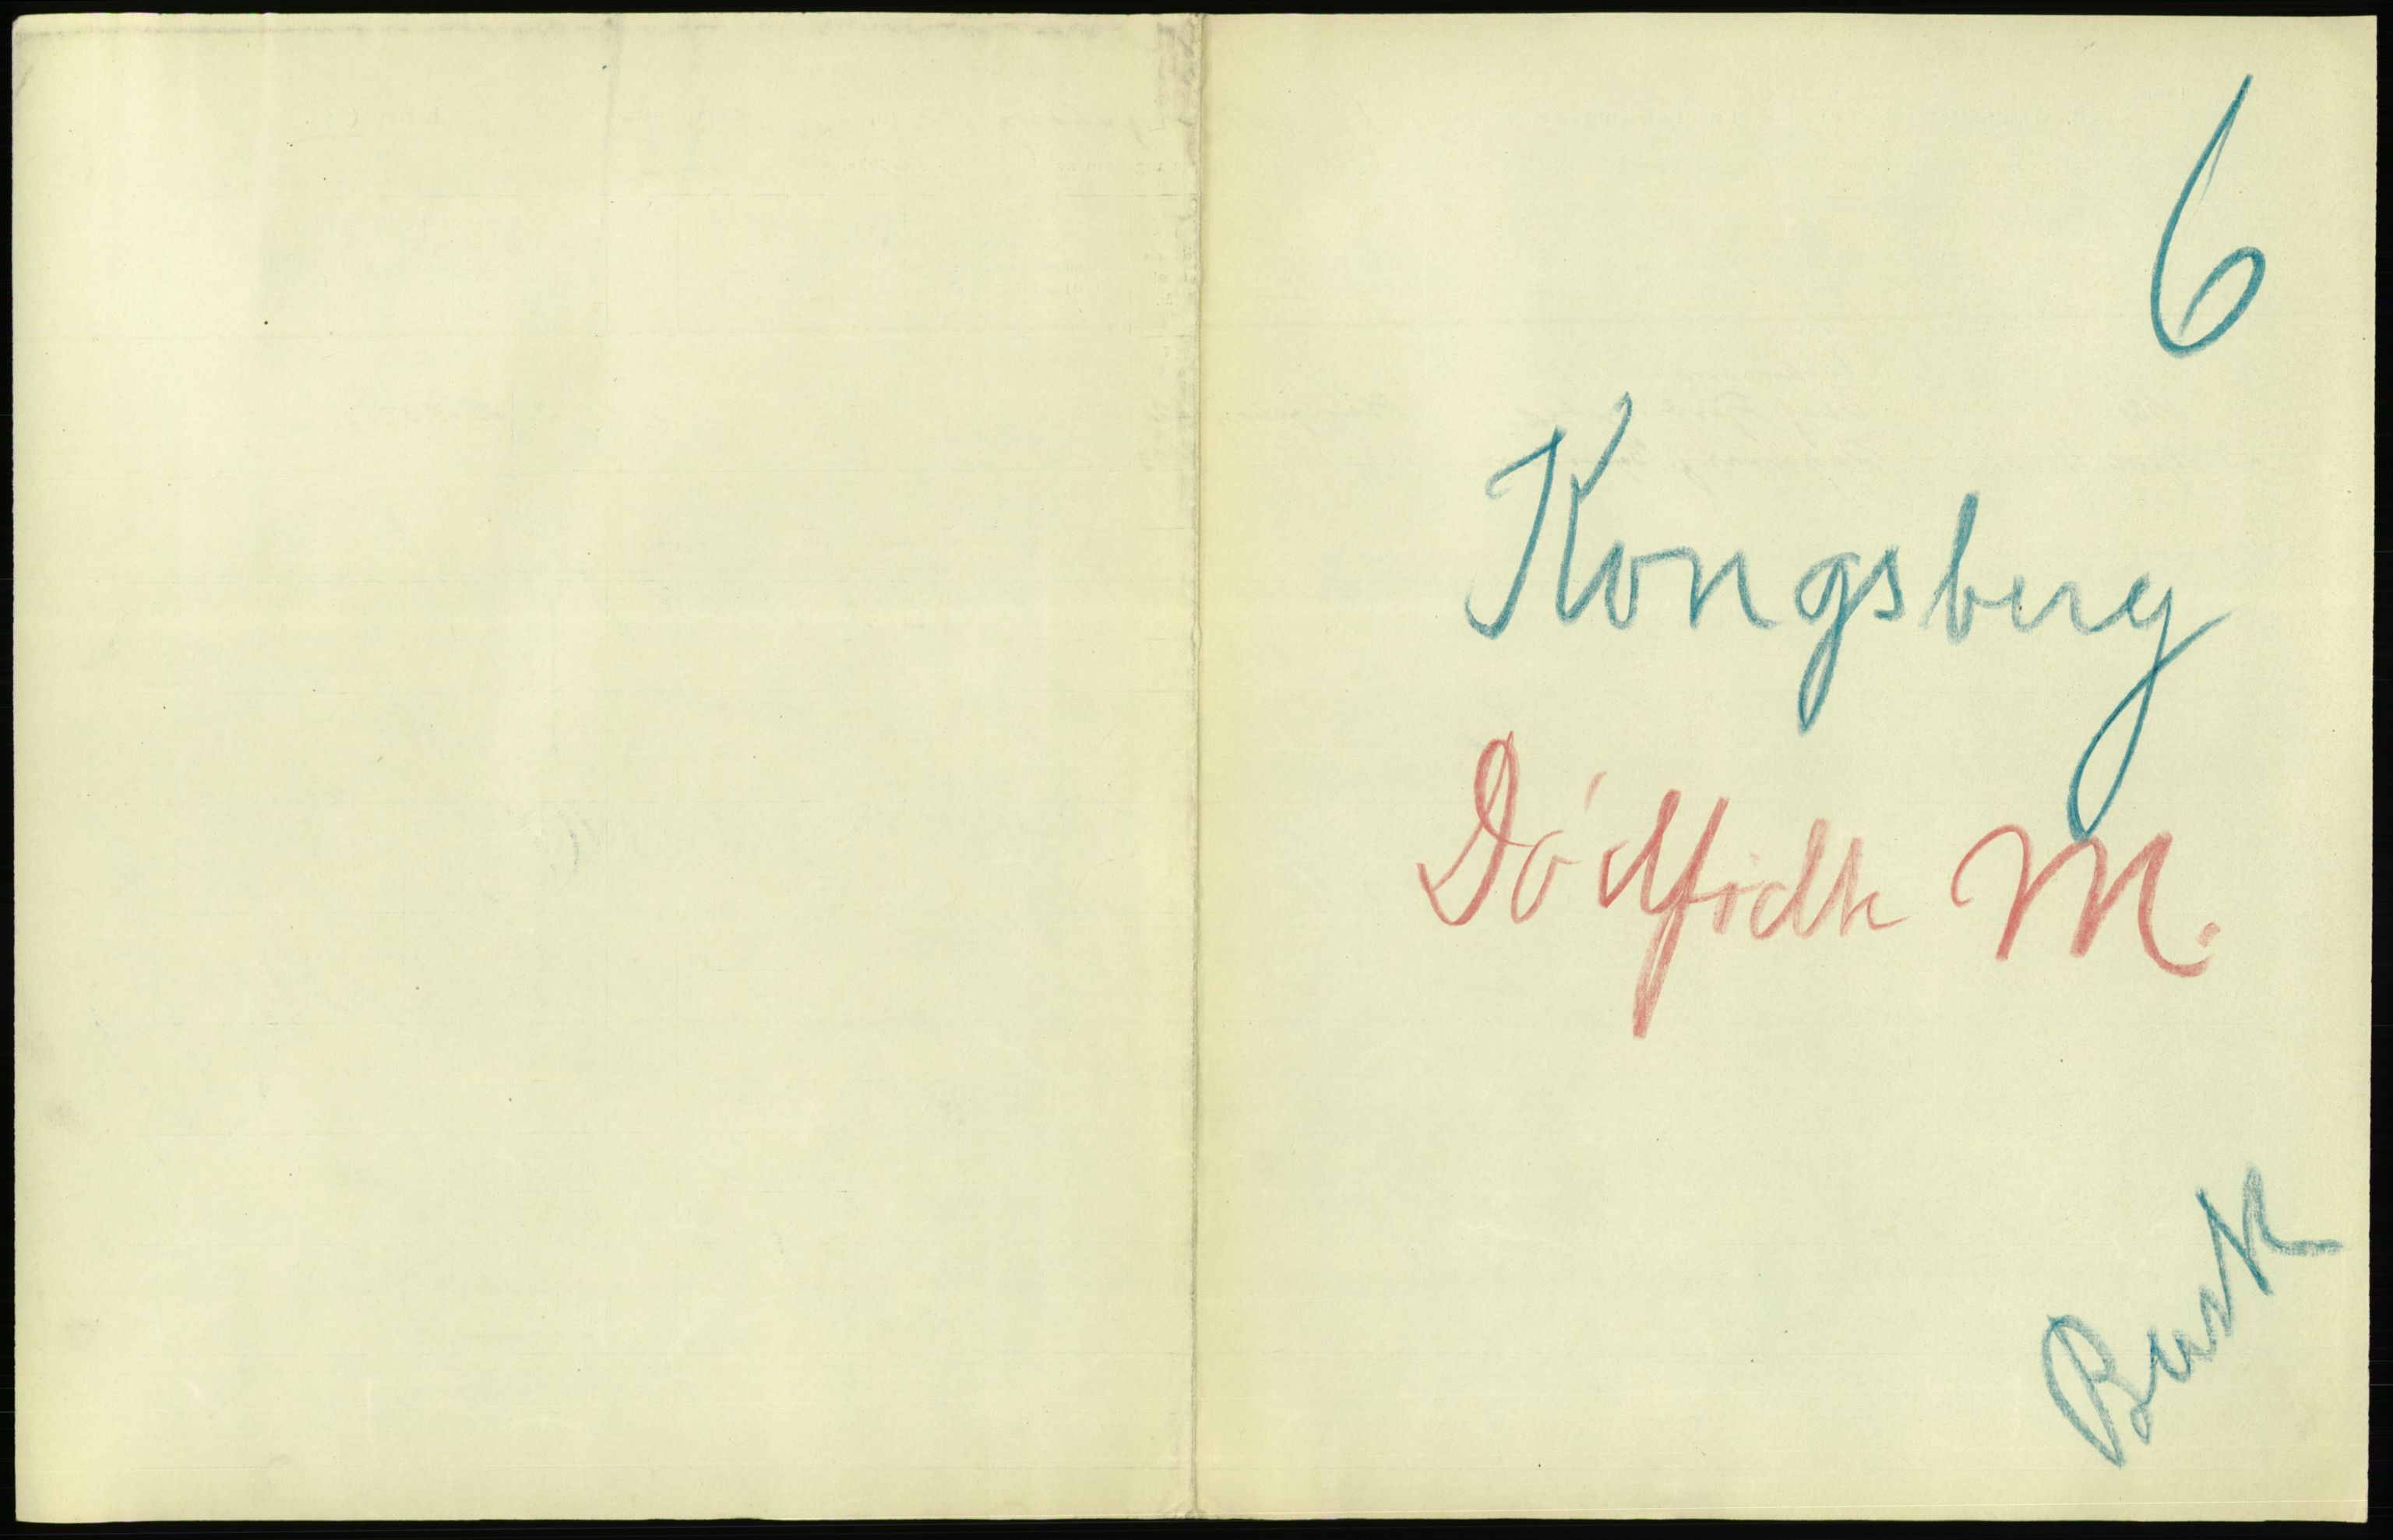 6
Kongsberg
Dødfødte M.
Busk